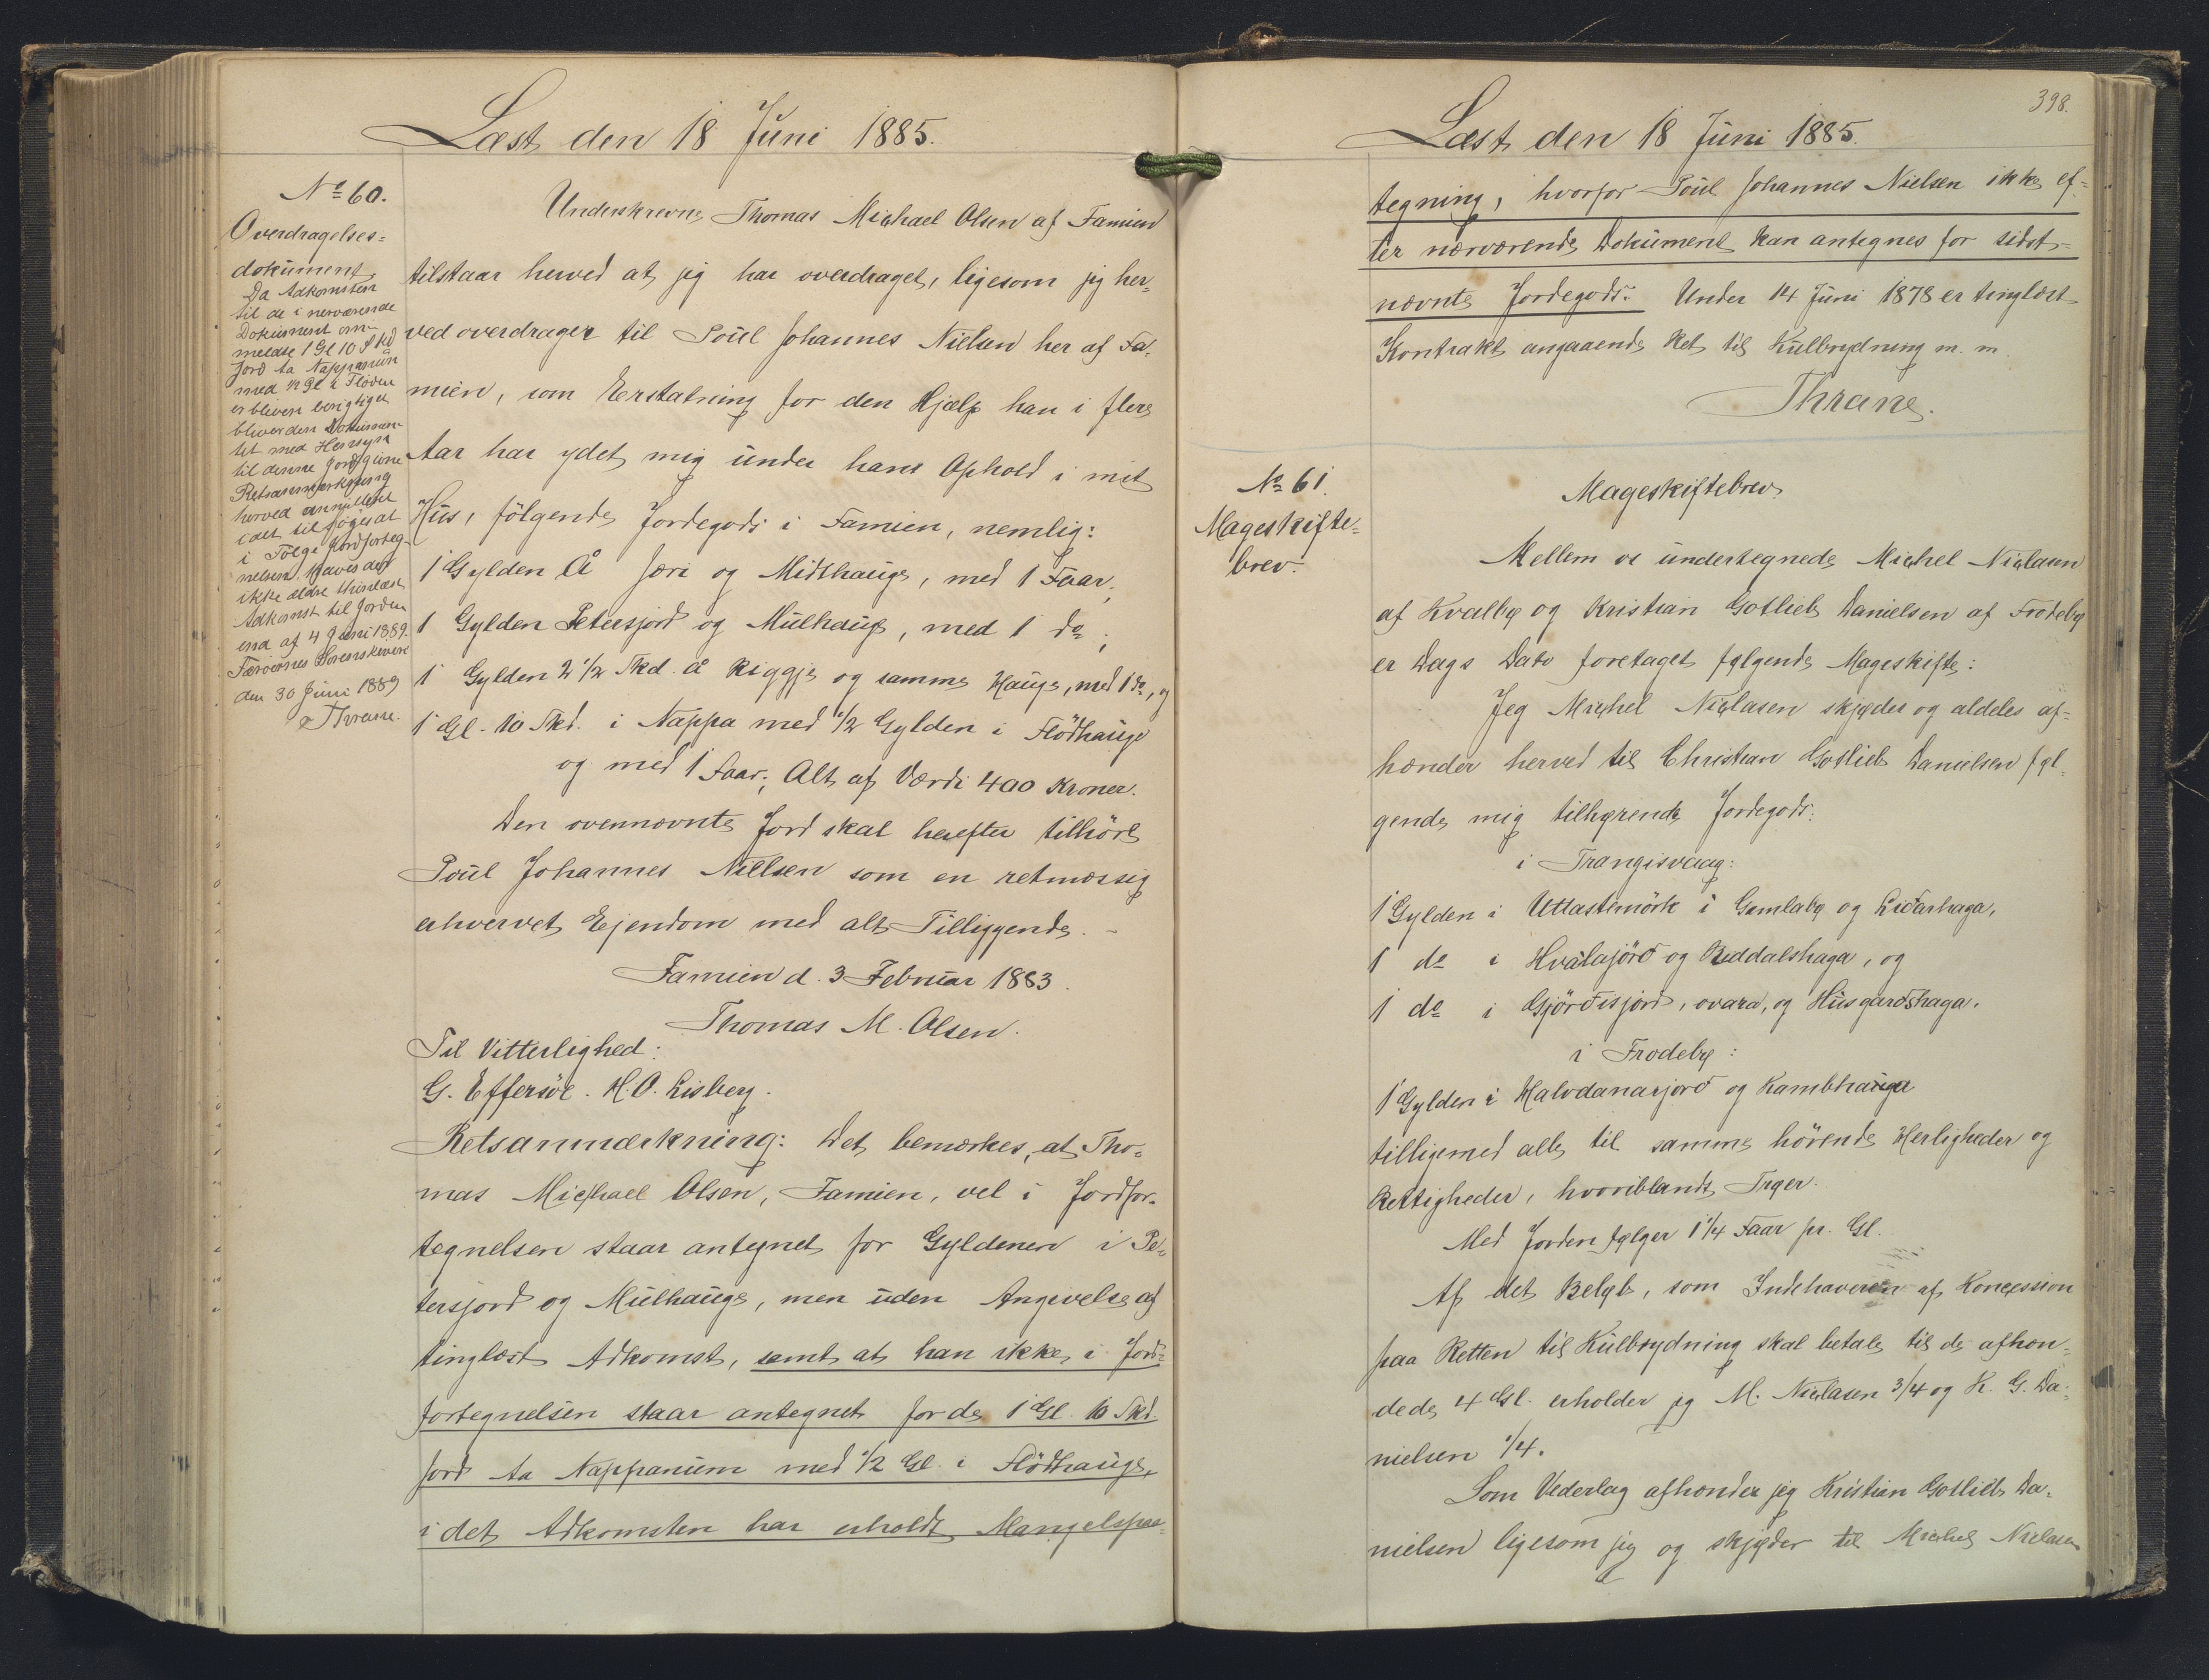 Læst den 18 Juni 1885.
No 60.
Overdragelses=
dokument
Da Adkomsten
til de i nærværende
Dokument om-
meldte 1 Gl 10 Skd
Jord ta Nappanum
med ½ Gl i Fløden
er bleven berigtiget
bliver den Dokumen-
tet med Hensyn
til denne Jord givne
Retsanmærkning
herved annulleret
idet tilføjes at
i Følge Jordforteg-
nelsen haves der
ikke ældre thinglæst
Adkomst til Jorden
end af 4 Juni 1889.
Færøernes Sorenskriveri
den 30 Juni 1889
Thrane.
Underskrevne Thomas Michael Olsen af Famien
tilstaar herved at jeg har overdraget, ligesom jeg her=
ved overdrager til Poul Johannes Nielsen her af Fa-
mien, som Erstatning for den Hjælp han i flere
Aar har ydet mig under hans Ophold i mit
Hus, følgende Jordegods i Famien, nemlig:
1 Gylden Å Jeri og Midthauge, med 1 Faar;
1 Gylden Petersjord og Mulhauge, med 1 do;
1 Gylden 2 ½ Skd. å Riggje og samme Hauge, med 1 do, og
1 Gl. 10 Skd. i Nappa med ½ Gylden i Flödhauge
og med 1 Faar; Alt af Værdi 400 Kroner.
Den ovennævnte Jord skal herefter tilhöre
Poul Johannes Nielsen som en retmæssig
erhvervet Ejendom med alt Tilliggende. -
Famien d. 3 Februar 1883.
Thomas M. Olsen.
Til Vitterlighed:
G. Effersöe. H. O. Lisberg.
Retsanmærkning: Det bemærkes, at Tho=
mas Michael Olsen, Famien, vel i Jordfor-
tegnelsen staar antegnet for Gyldenen i Pe-
tersjord og Mulhauge, men uden Angivelse af
tinglæst Adkomst, samt at han ikke i Jord=
fortegnelsen staar antegnet for de 1 Gl. 10 Skd.
Jord ta Nappanum med ½ Gl. i Flödhauge,
idet Adkomsten har erholdt Mangelspaa=
398.
Læst den 18 Juni 1885.
tegning, hvorfor Poul Johannes Nielsen ikke ef=
ter nærværende Dokument kan antegnes for sidst=
nævnte Jordegods. Under 14 Juni 1878 er tinglæst
Kontrakt angaaende Ret til Kulbrydning m. m.
Thrane.
No 61.
Mageskifte=
brev.
Mageskiftebrev
Mellem os undertegnede Michel Niclasen
af Kvalbø og Kristian Gotlieb Danielsen af Frodebø
er Dags Dato foretaget følgende Mageskifte:
Jeg Michel Niclasen skjøder og aldeles af=
hænder herved til Christian Gotlieb Danielsen føl=
gende mig tilhørende Jordegods:
i Trangisvaag:
1 Gylden i Uttastemörk i Gamlabø og Liđarhaga,
1 do i Hvalajörđ og Reddalshaga, og
1 do i Gjörđisjörđ, ovara, og Húsgarđshaga.
i Frodebø:
1 Gylden i Halvdanarjorđ og Kambhauga
tilligemed alle til samme hörende Herligheder og
Rettigheder, hvoriblandt Trøer.
Med Jorden følger 1 ¼ Faar pr. Gl.
Af det Beløb, som Indehaveren af Koncession
paa Retten til Kulbrydning skal betale til de afhæn=
dede 4 Gl. erholder jeg M. Niclasen ¾ og K. G. Da=
nielsen ¼.
Som Vederlag afhænder jeg Kristian Gotlieb Da-
nielsen ligesom jeg og skjøder til Michel Niclasen